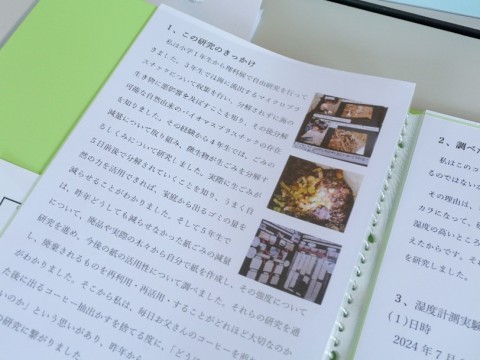 1、この研究のきっかけ
私は小学1年生から理科展で自由研究を行って
きました。3年生では海に流出するマイクロプラ
スチックについて収集を行い、分解されずに海の
生き物に悪影響を及ぼすことを知り、その後分解
可能な自然由来のバイオマスプラスチックの存在
を知りました。その経験から4年生では、ごみの
減量について取り組み、微生物が生ごみを分解す
るしくみについて研究しました。実際に生ごみが
5日前後で分解されていくことを知り、うまく自
然の力を活用できれば、家庭から出るゴミの量を
減らせることがわかりました。そして5年生で
は、昨年どうしても減らせなかった紙ごみの減量
について、廃品や実際の木々から自分で紙を作成し、その強度について
研究を進め、今後の紙の活用性について調べました。それらの研究を通
し、廃棄されるものを再利用・再活用・することがどれほど大切なのか
がわかりました。そこから私は、毎日お父さんのコーヒーを
た後に出るコーヒー抽出かすを捨てる度に、「どう
いのか」という思いがあり、昨年から
の研究に繋がりました
2、調べた
私はこのコ
るのではないか
その理由は、
カラになって、
湿度の高いところ
えたからです。それ
を研究しました。
3、湿度計測実験
(1)日時
2024年7月